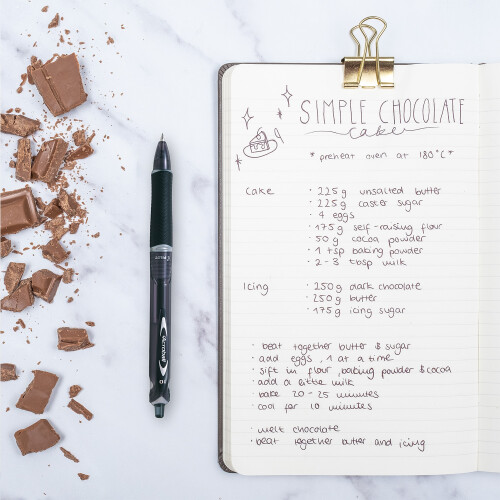 SIMPLE CHOCOLATE
cake
* preheat oven at 180°C *
Cake
· 225g unsalted butter
· 225g caster sugar
· 4 eggs
· 175g self-raising flour
· 50g cocoa powder
· 1 tsp baking powder
· 2-3 tbsp milk
Icing
· 250g dark chocolate
· 250g butter
· 175g icing sugar
· beat together butter & sugar
· add eggs, 1 at a time
· sift in flour, baking powder & cocoa
· add a little milk
· bake 20-25 minutes
· cool for 10 minutes
· melt chocolate
· beat together butter and icing
PILOT
Acroball